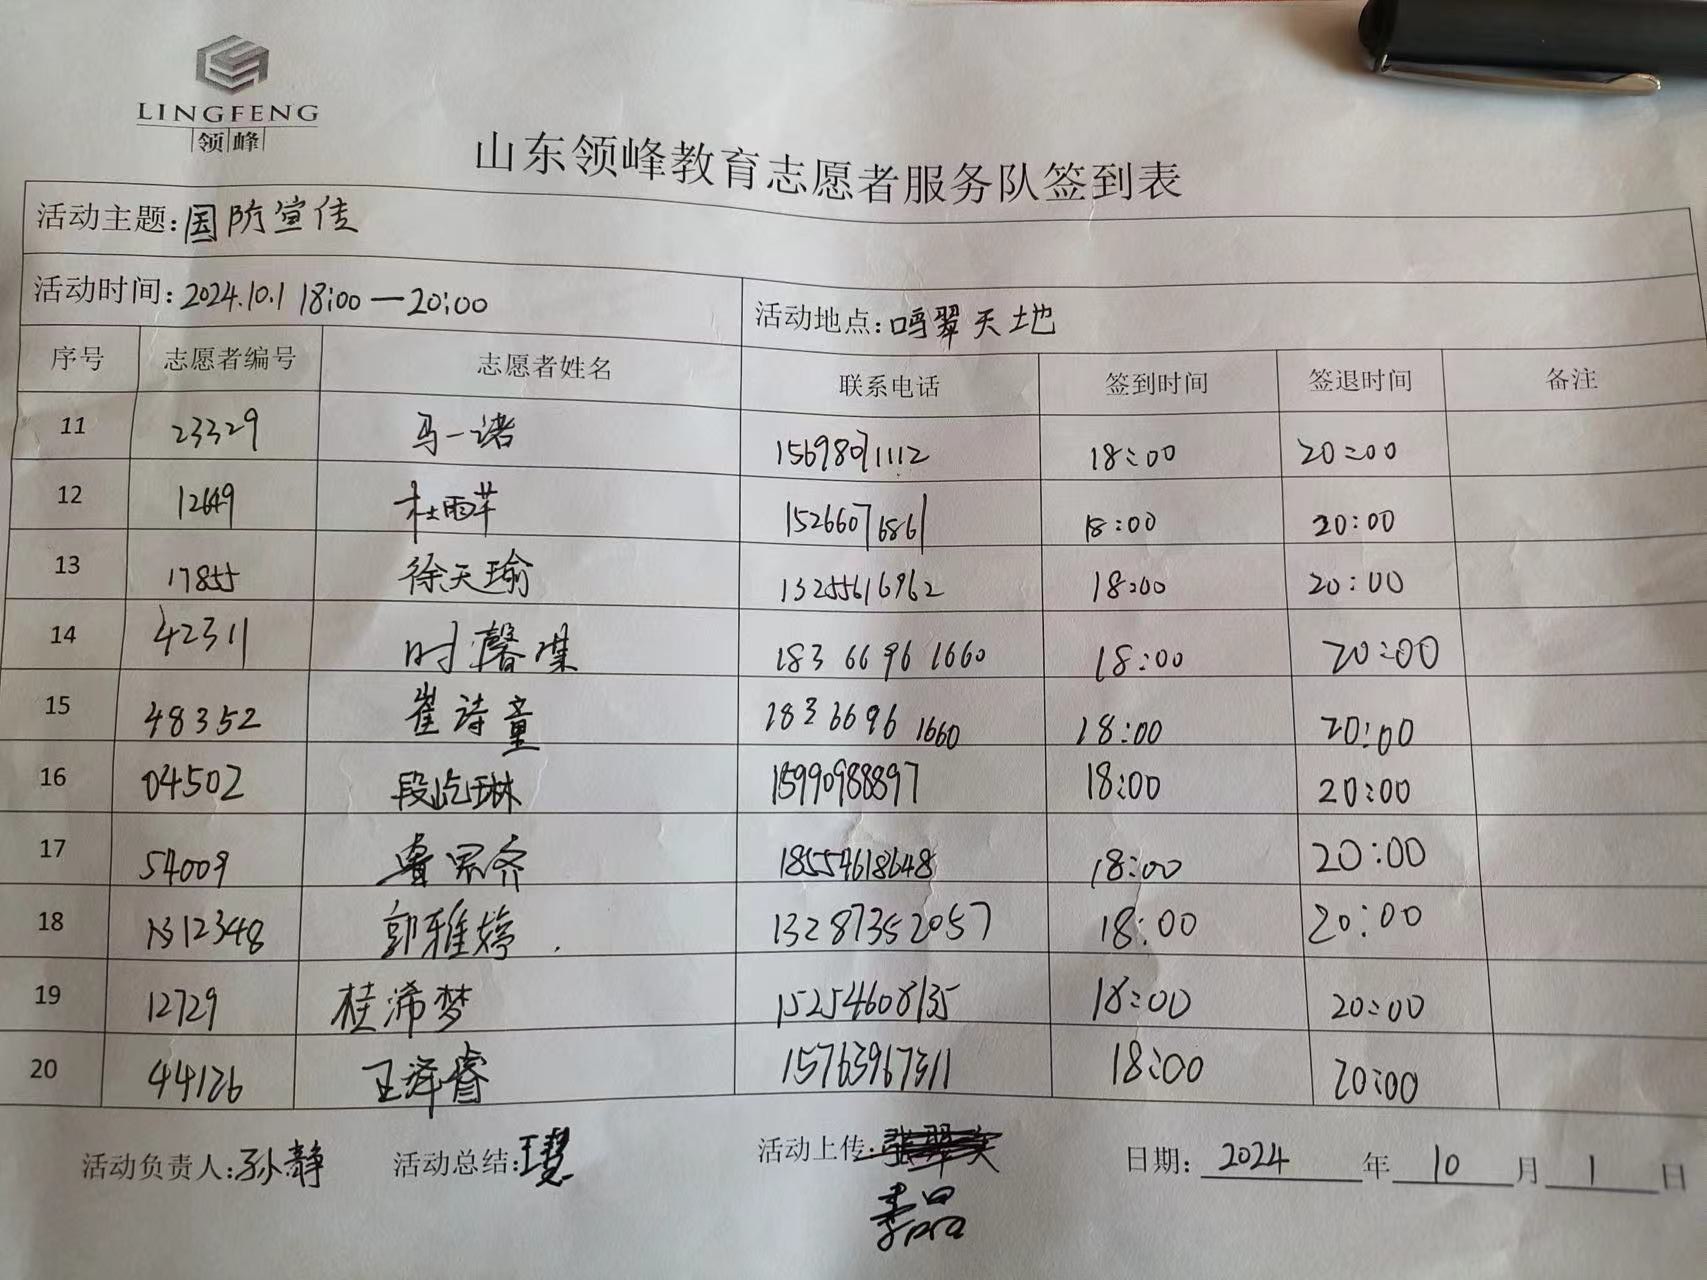 LINGFENG
领峰
山东领峰教育志愿者服务队签到表
活动主题:国防宣传
活动时间:2024.10.1 18:00—20:00 活动地点:鸣翠天地
序号 志愿者编号 志愿者姓名 联系电话 签到时间 签退时间 备注
11 23329 马一诺 15698071112 18:00 20:00
12 12649 杜雨芊 15266071686 18:00 20:00
13 17855 徐天瑜 13255616962 18:00 20:00
14 42311 时馨 18366961660 18:00 20:00
15 48352 崔诗童 18366961660 18:00 20:00
16 04502 段屹琳 15990988897 18:00 20:00
17 54009 18554618648 18:00 20:00
18 郭雅婷 13287352057 18:00 20:00
19 12729 桂浠梦 15254608135 18:00 20:00
20 44126 王泽睿 15763967311 18:00 20:00
活动负责人:孙静 活动总结:王慧 活动上传: 日期: 2024 年 10 月 1 日
李品